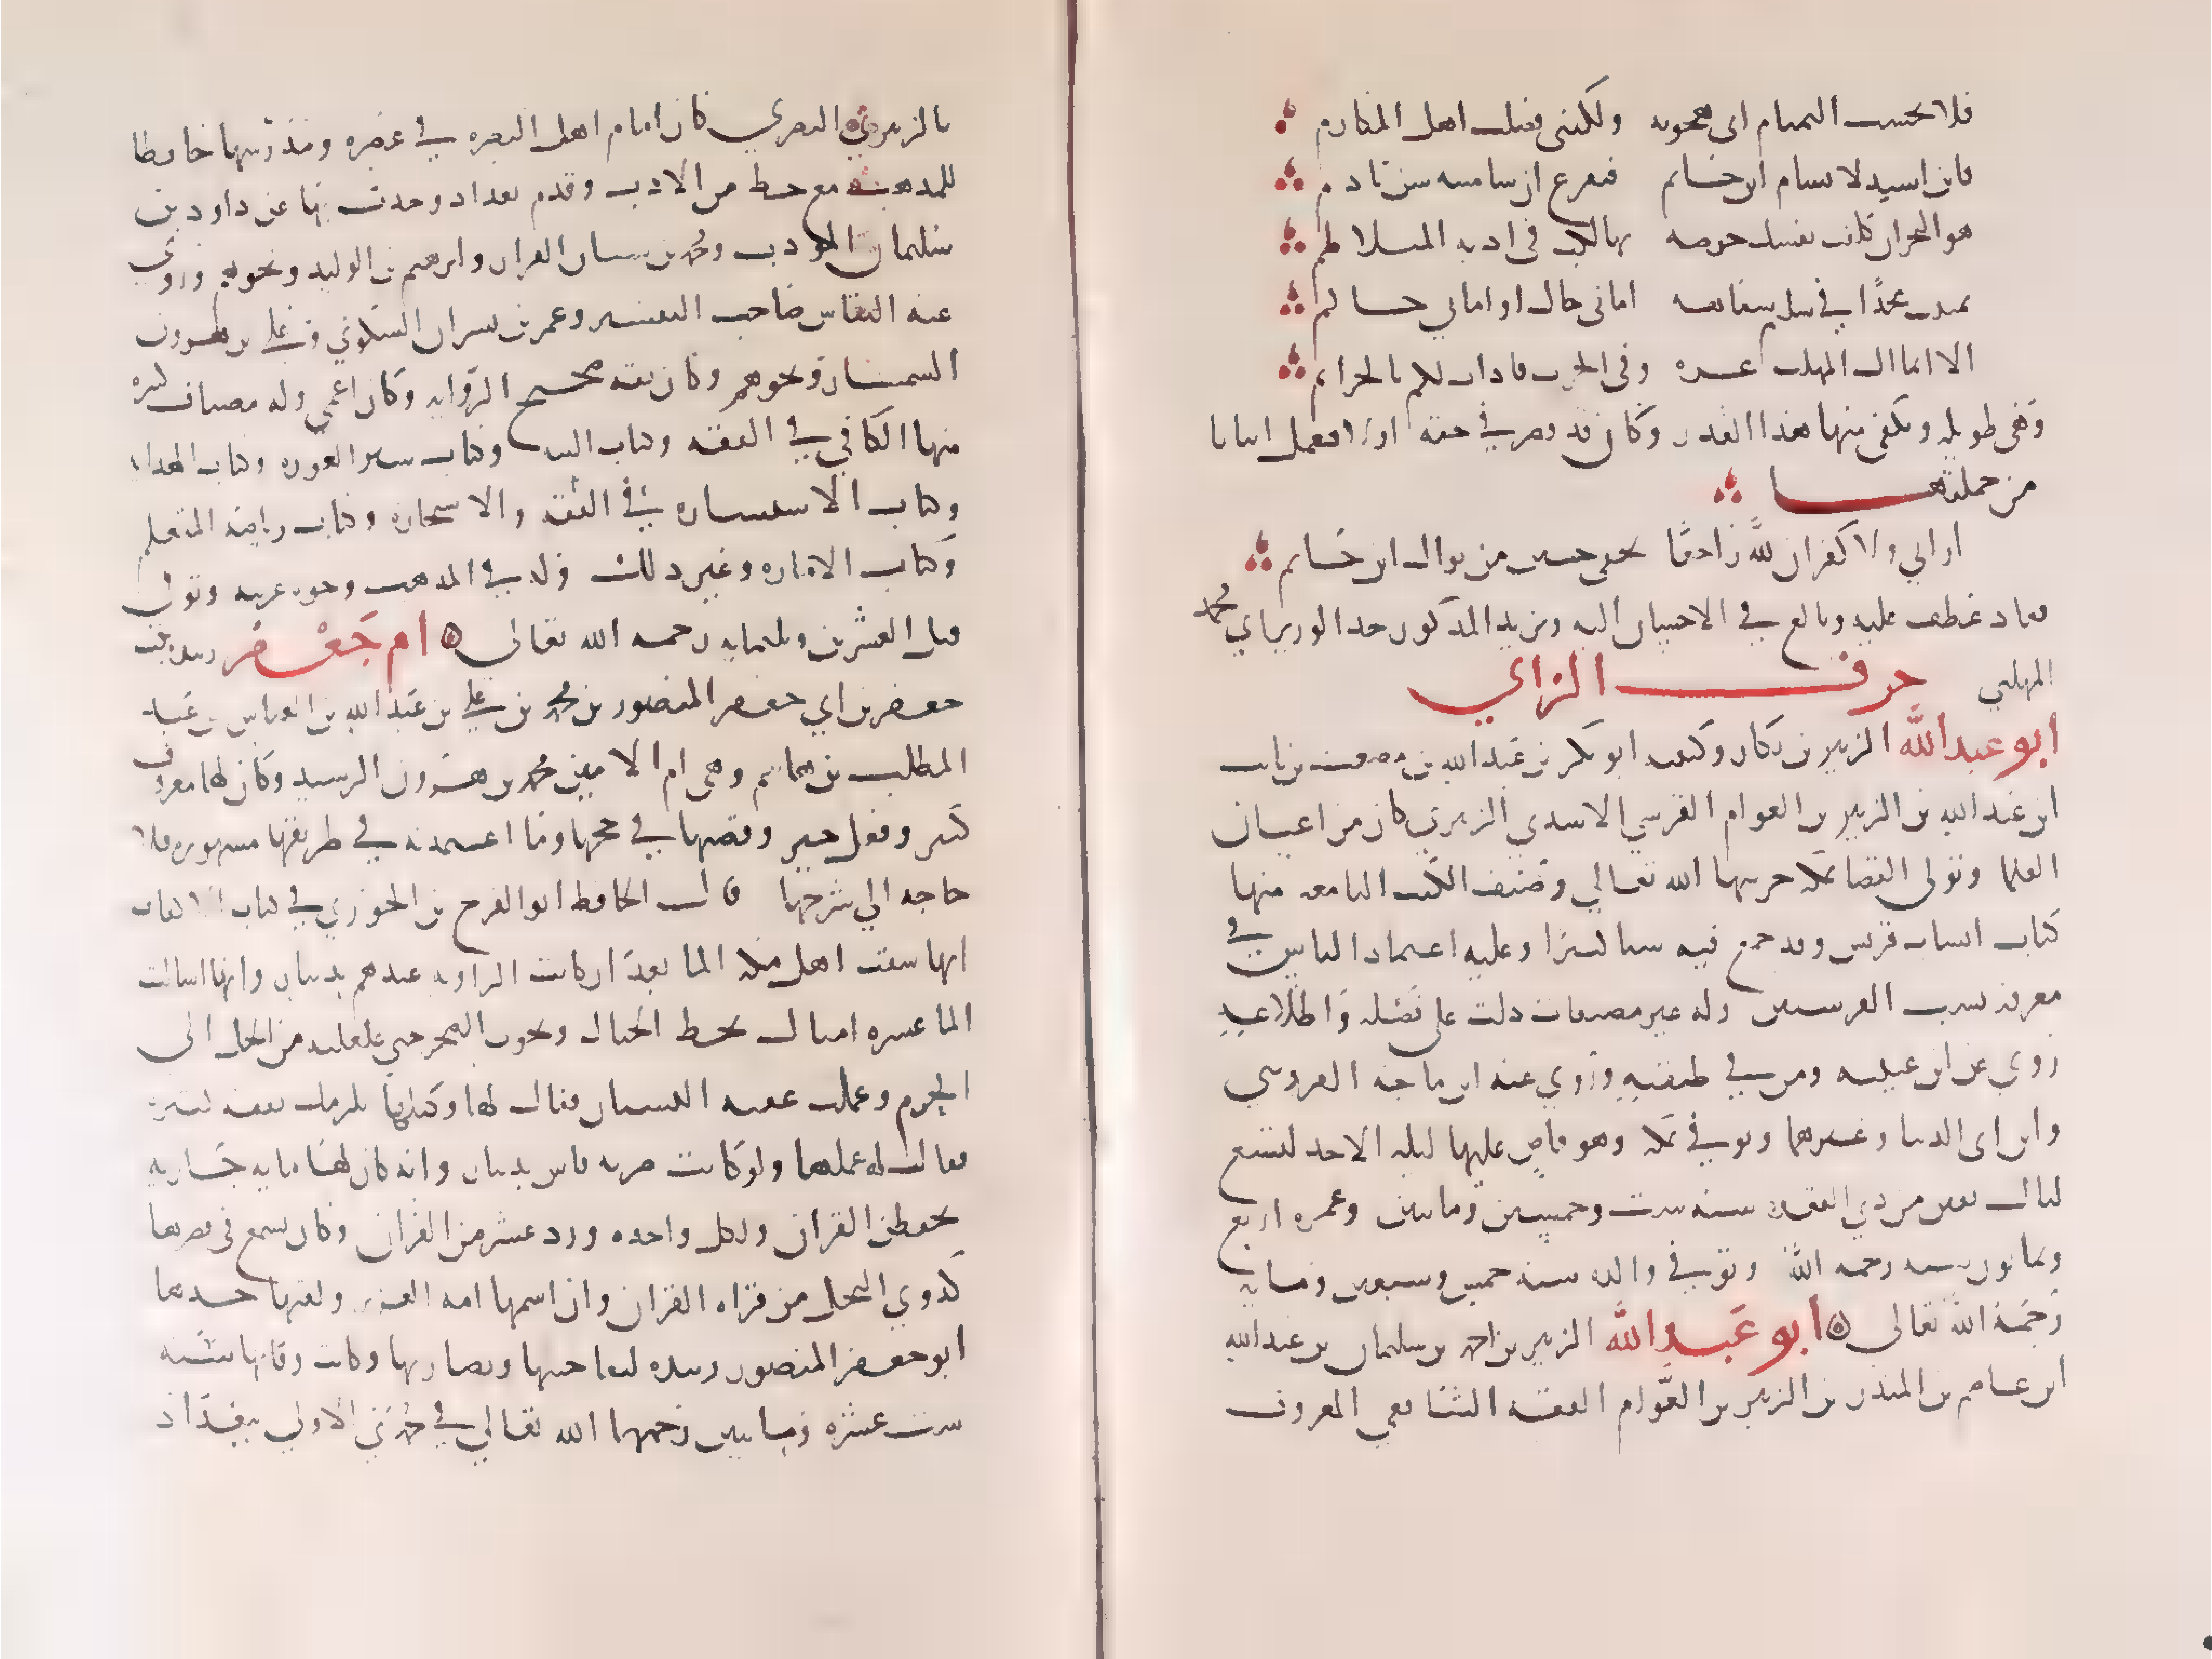 فلا يحسب التمتام اني هجوته ولكنني فضلت اهل المكارم
فابن اسيد لا تسام ابن حاتم فتقرع ان ساميته سن نادم
هو البحران كلفت نفسك خوضه تهالكت في اديه المتلاطم
تمنيت مجدًا في سليم سفاهه اماني خال او اماني حالم
الا انما ال المهلب غره وفي الحرب قادات لكم بالخزائم
وهي طويله ونكتفي منها هذا القدر وكان قد قصر في حقه اولا فعمل ابياتا
من جملتها
اراني ولا كفران لله راجعًا بخفي حنين من نوال ابن حاتم
فعاد عطف عليه وبالغ في الاحسان اليه ويزيد المذكور جد الوزير ابي محمد
المهلبي حرف الزاي
أبو عبد الله الزبير بن بكار وكنيته ابو بكر بن عبد الله بن مصعب بن ثابت
ابن عبد الله بن الزبير بن العوام القرشي الاسدي الزبيري كان من اعيان
العلما وتولى القضا بمكه حرسها الله تعالى وصنف الكتب النافعه منها
كتاب انساب قريش وقد جمع فيه شيا كثيرا وعليه اعتماد الناس في
معرفه نسب القرشيين وله غير مصنفات دلت على فضله واطلاعه
روى عن ابن عيينه ومن في طبقته وروى عنه ابن ماجه القزويني
وابن ابي الدنيا وغيرهما وتوفي بمكه وهو قاض عليها ليله الاحد لتسع
ليال بقين من ذي القعده سنه ست وخمسين وماتين وعمره اربع
وثمانون سنه رحمه الله وتوفي والده سنه خمس وتسعين ومايه
رحمة الله تعالى أبو عبد الله الزبير بن احمد بن سليمان بن عبد الله
ابن عاصم بن المنذر بن الزبير بن العوّام الفقيه الشافعي المعروف
بالزبيري البصري كان امام اهل البصره في عصره ومدرسها حافظا
للمذهب مع حظ من الادب وقدم بغداد وحدث بها عن داود بن
سليمان المودب ومحمد بن سنان القزاز وابرهيم بن الوليد ونحوهم وروى
عنه النقاش صاحب التفسير وعمر بن بشران السكوني وعلي بن هرون
السمسار ونحوهم وكان ثقه صحيح الروايه وكان اعمى وله مصنفات كثيره
منها الكافي في الفقه وكتاب النيه وكتاب ستر العوره وكتاب الهدايه
وكتاب الاستشاره في الفقه والاستخاره وكتاب رياضه المتعلم
وكتاب الاماره وغير ذلك وله في المذهب وجوه غريبه وتوفي
قبل العشرين وثلثمايه رحمه الله تعالى أم جعفر زبيده بنت
جعفر بن ابي جعفر المنصور بن محمد بن علي بن عبد الله بن العباس بن عبد
المطلب بن هاشم وهي ام الامين محمد بن هرون الرشيد وكان لها معروف
كثير وفعل خير وقصتها في حجها وما اعتمدته في طريقها مشهوره فلا
حاجه الي شرحها قال الحافظ ابو الفرج بن الجوزي في كتاب الالقاب
انها سقت اهل مكه الما بعد ان كانت الراويه عندهم بدينار وانها اسالت
الما عشره اميال بحط الجبال ونحوت الصخر حتى غلغلته من الحل الى
الحرم وعملت عقبه البستان فقال لها وكيلها يلزمك نفقه كثيره
فقالت له اعملها ولو كانت ضربه فاس بدينار وانه كان لها مايه جاريه
يحفظن القران ولكل واحده ورد عشر من القران وكان يسمع في قصرها
كدوي النحل من قراه القران وان اسمها امه العزيز ولقبها جدها
ابو جعفر المنصور زبيده لبضاضتها ونضارتها وكانت وفاتها سنه
ست عشره وماتين رحمهما الله تعالي في جمدي الاولي ببغداد